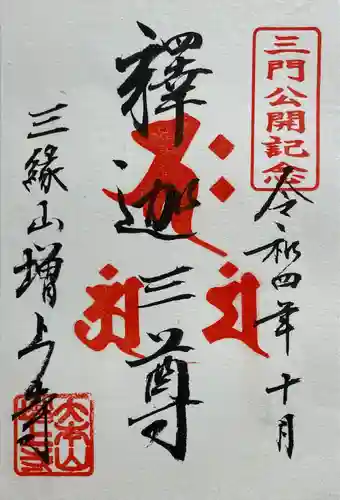 三門公開記念
令和四年十月
釋迦三尊
三緣山増上寺
大本山
増上寺